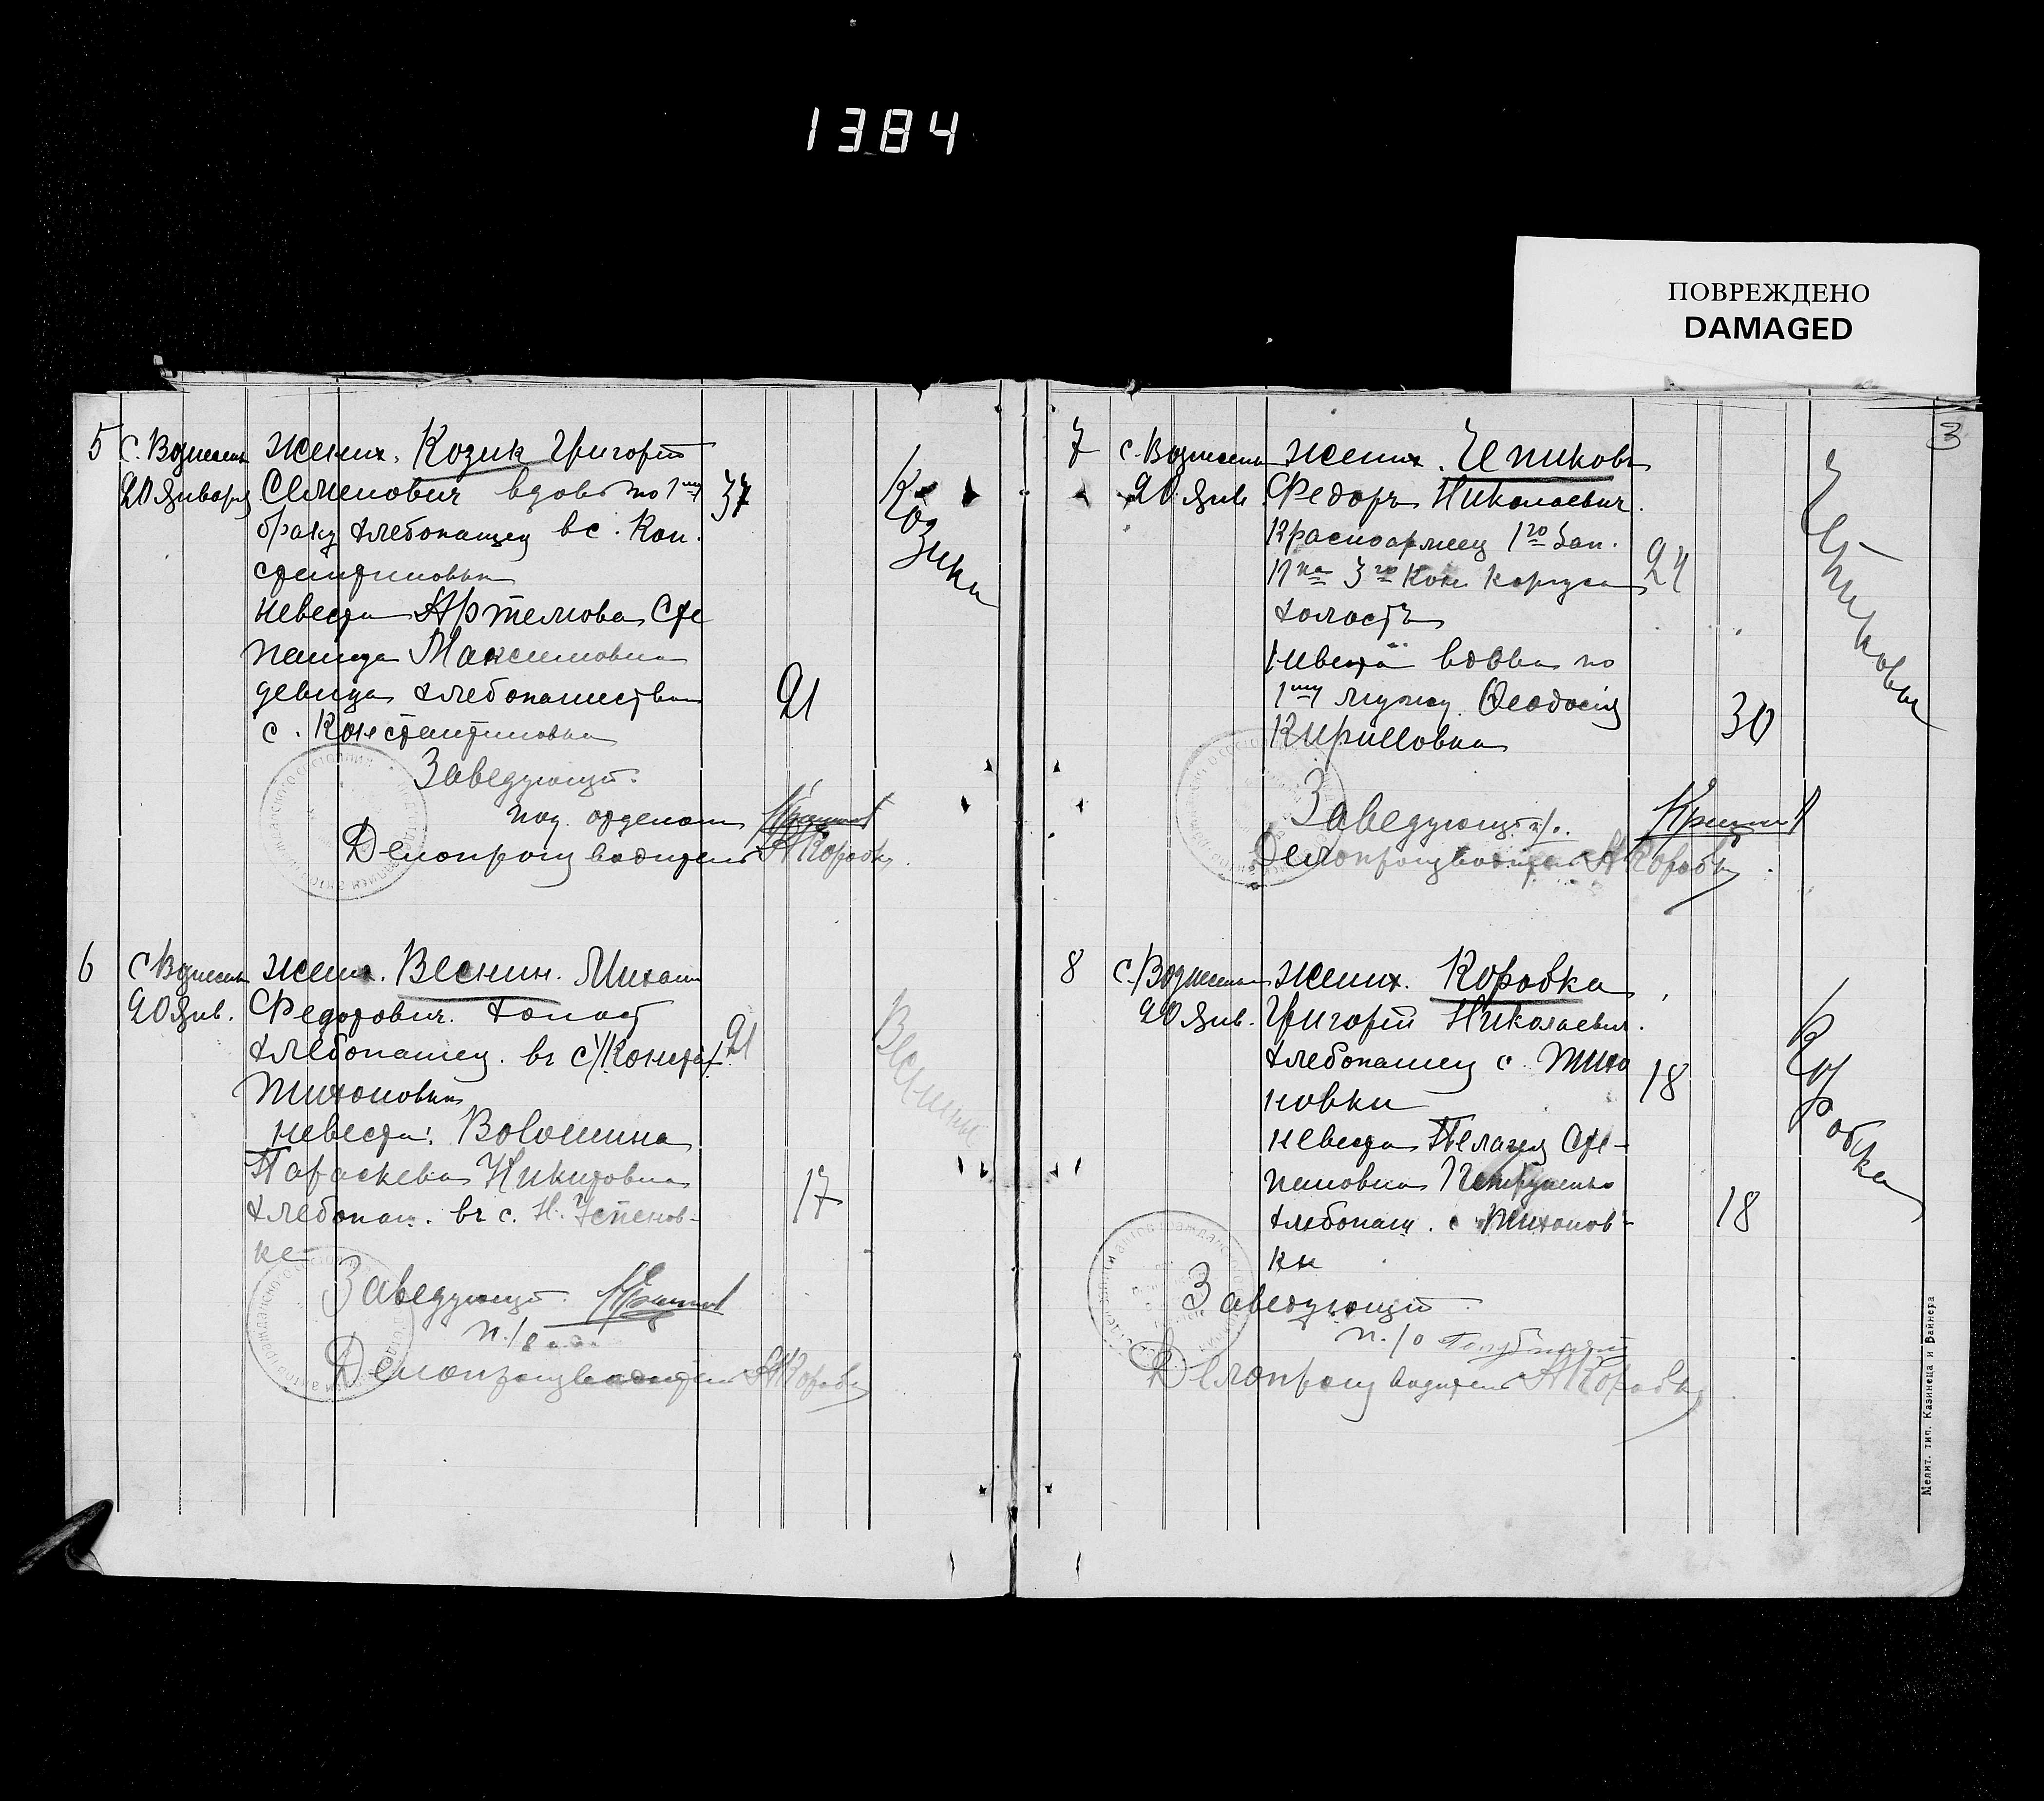 1384
ПОВРЕЖДЕНО
DAMAGED
5
с. Вознесен
20 Января
жених. Козик Григорий
Семенович вдов по 1му
37
браку хлебопашец в с. Кон
стантиновки
невеста Артемова Сте
панида Максимовна
девица хлебопашества
21
с. Константиновка
Заведующий
под. орденом
Делопроизводитель АКоробка
Козики
6
с Вознесен
20 Янв.
жених. Веснин. Михаил
Федорович. холост
хлебопашец. въ с/
21
Тихоновки
невеста: Волошина
Параскева Никитовна
17
хлебопаш. въ с. Н. Успенов-
ке
Заведующий
п./о
Делопроизводитель АКоробка
Веснины
3
7
с. Вознесен
20 Янв.
жених. Чепиковъ
Федоръ Николаевич.
Красноармеец 1го Зап.
24
Пка 3го Кон Корпуса
холостъ
невеста вдова по
1му мужу. Феодосия
30
Кирилловна
Заведующий
Делопроизводитель АКоробка
Чепиковы
8
с/Вознесен
20 Янв.
жених. Коробка
Григорий Николаевич.
хлебопашец с. Тихо
18
новки
невеста Пелагея Сте-
пановна Петруненко
хлебопаш. с Тихонов-
18
ки
Заведующий
п./о
Делопроизводитель АКоробка
Коробка
Мелит. тип. Казинеца и Вайнера